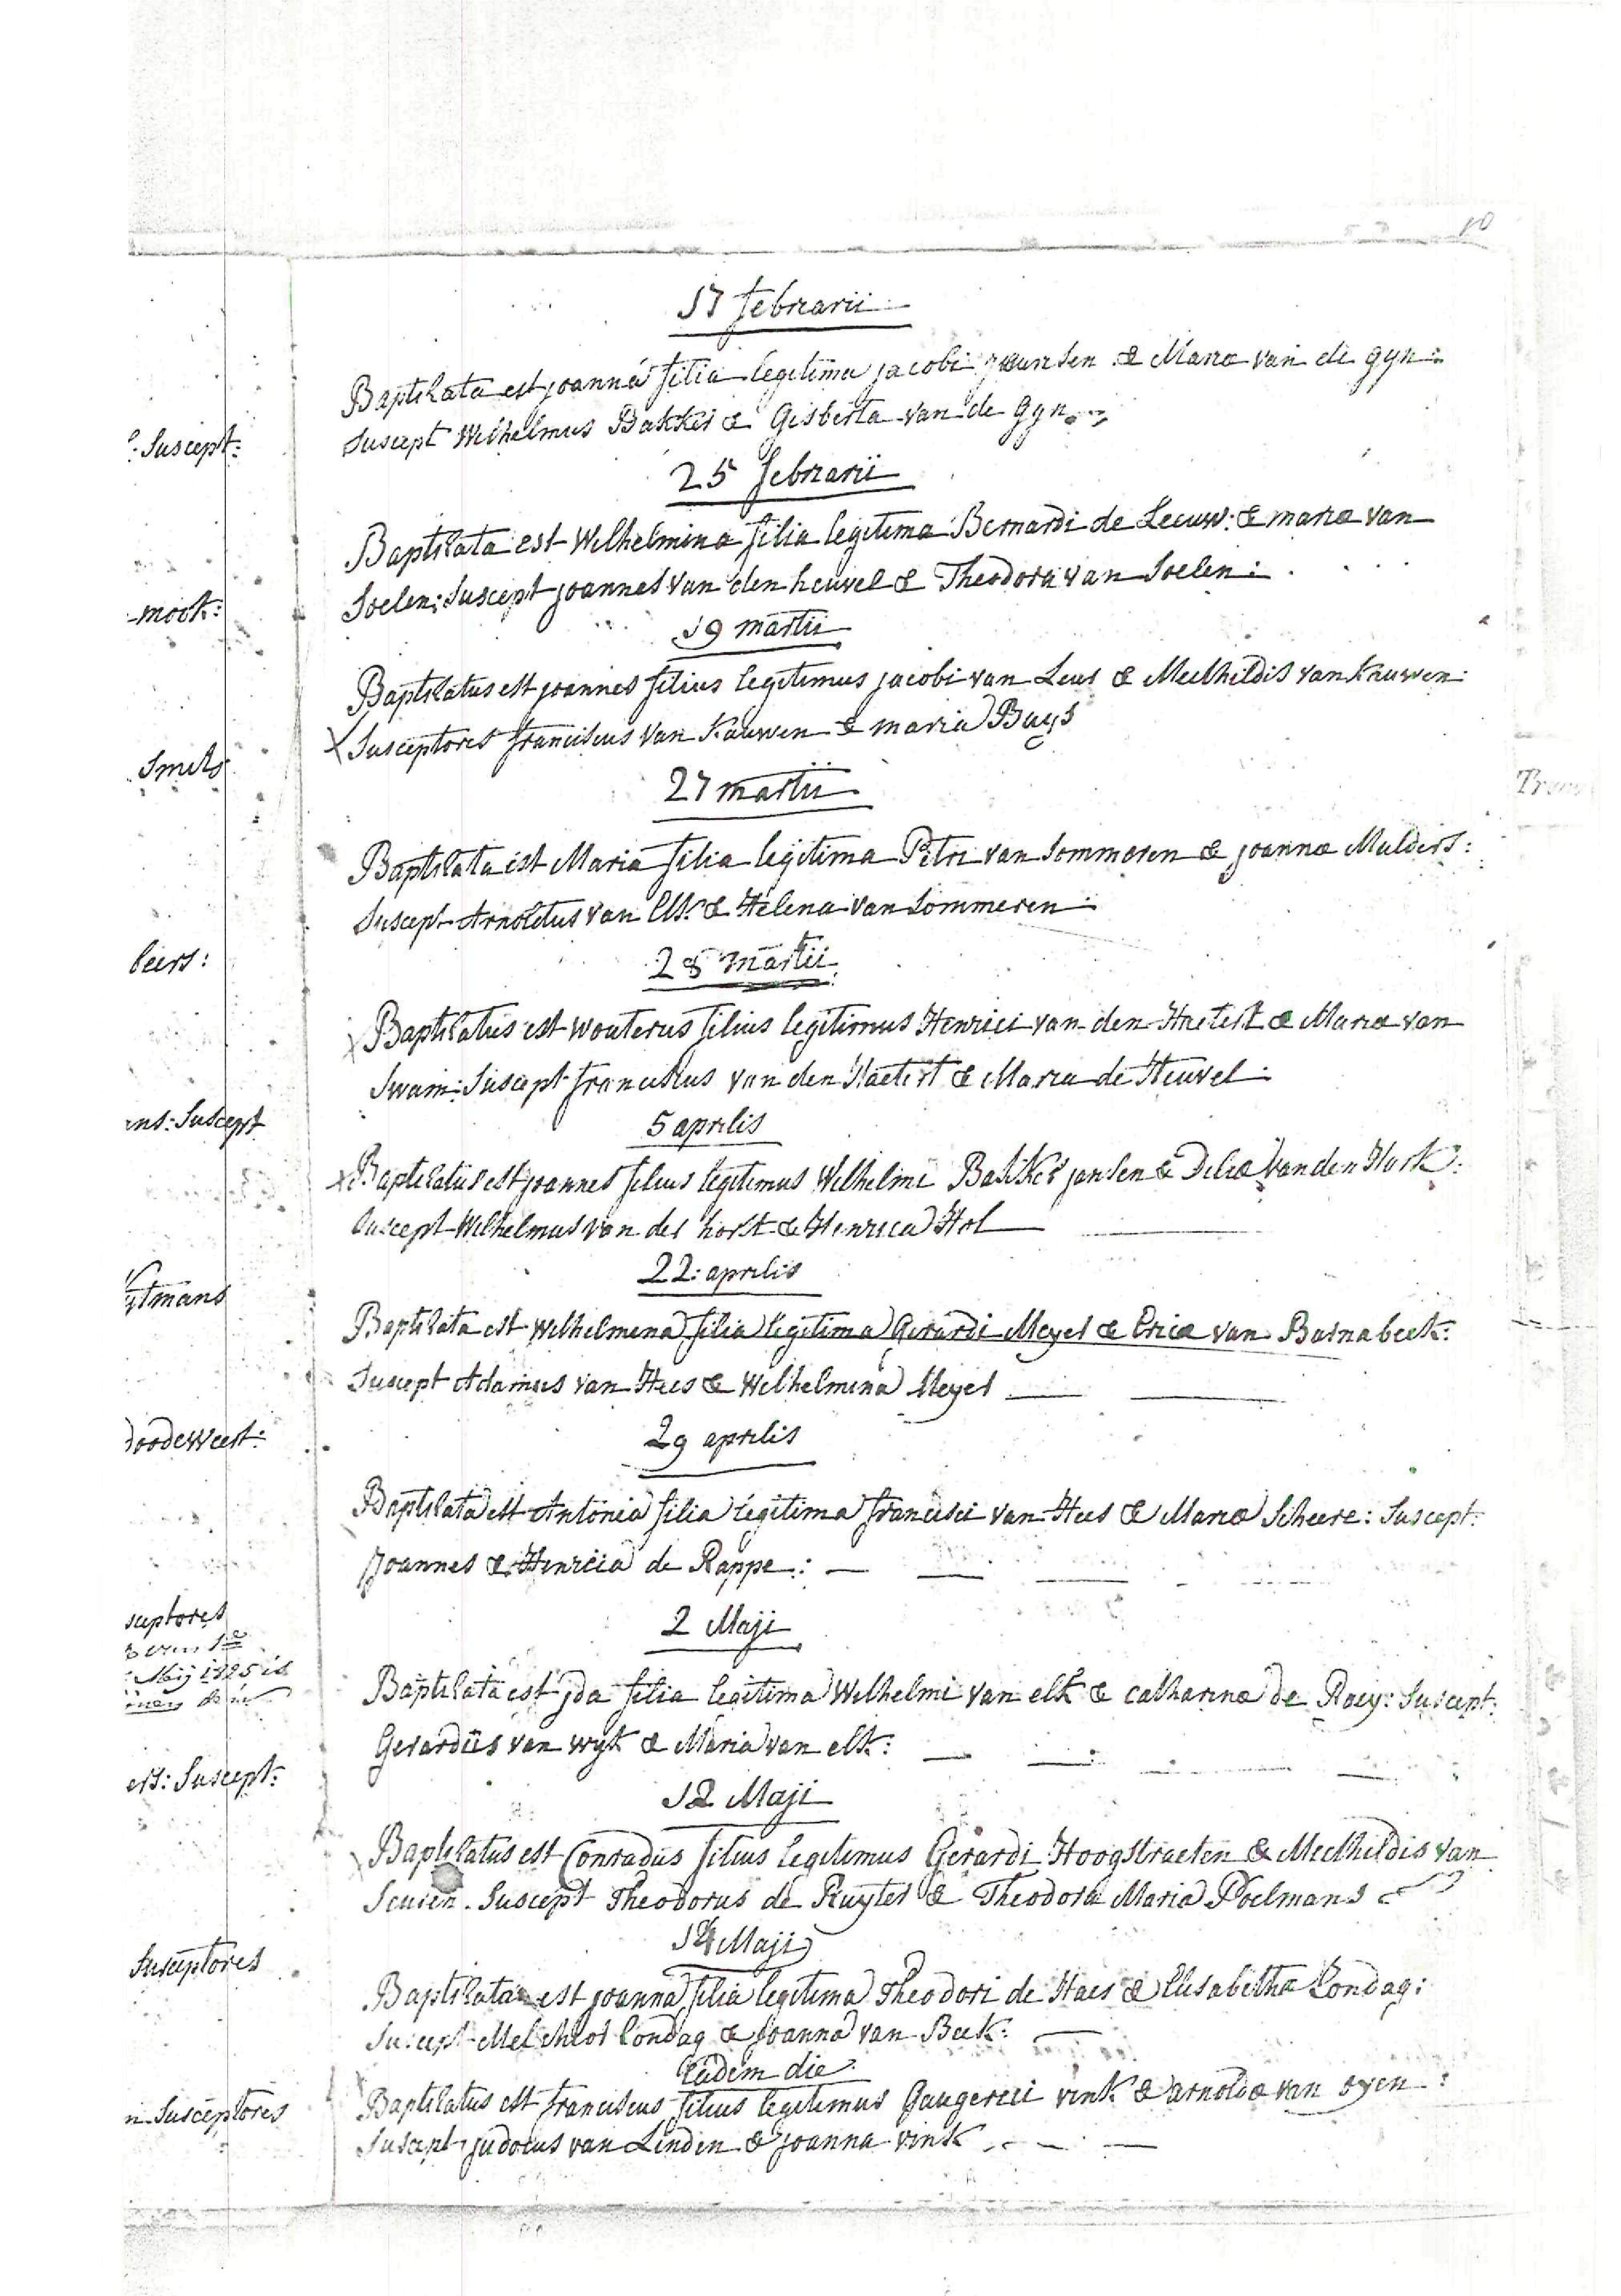 10
17 februarii
Baptisata est joanna filia legitima jacobi jansen & Mariæ van de gyn:
Suscept Wilhelmus Bakker & Gisberta van de Gyn
: Suscept:
25 februarii
Baptisata est Wilhelmina filia legitima Bernardi de Leeuw: & mariæ van
Soelen: Suscept joannes van den heuvel & Theodora van Soelen:
-mook:
19 martii
Baptisatus est joannes filius legitimus jacobi van Leur & Mechtildis van Kauwen:
Susceptores franciscus van Kauwen & maria Buys
Smets
27 martii
Baptisata est Maria filia legitima Petri van Sommeren & joannæ Mulders:
Suscept Arnoldus van Elk & Helena van Sommeren:
beers:
28 martii
Baptisatus est Wouterus filius legitimus Henrici van den Hatert & Mariæ van
Swam: Suscept franciscus van den Hatert & Maria de Heuvel:
ens: Suscept
5 aprilis
Baptisatus est joannes filius legitimus Wilhelmi Bakker jansen & Deliæ van den Hurk:
Suscept Wilhelmus van der horst & Henrica Hol
ytmans
22: aprilis
Baptisata est Wilhelmina filia legitima Gerardi Meyer & Ericæ van Barnabeek:
Suscept Adamus van Hees & Wilhelmina Meyer
doodeweert:
29 aprilis
Baptisata est Antonia filia legitima francisci van Hees & Mariæ Scheere: Suscept:
Joannes & Henrica de Rappe:
2 Maji
sceptores
Mey 1825 is
Baptisata est jda filia legitima Wilhelmi van elk & catharinæ de Roey: Suscept:
Gerardus van wyk & Maria van elk:
ers: Suscept:
12 Maji
Baptisatus est Conradus filius legitimus Gerardi Hoogstraeten & Mechtildis van
Seuren. Suscept Theodorus de Ruyter & Theodora Maria Poelmans
14 Maji
Susceptores
Baptisata est joanna filia legitima Theodori de Haes & Elisabetha Londag:
Suscept Melchior Londag & joanna van Beek:
Eadem die
Baptisatus est franciscus filius legitimus Gaugerici vink & arnoldæ van oyen:
n Susceptores
Suscept judocus van Linden & joanna vink